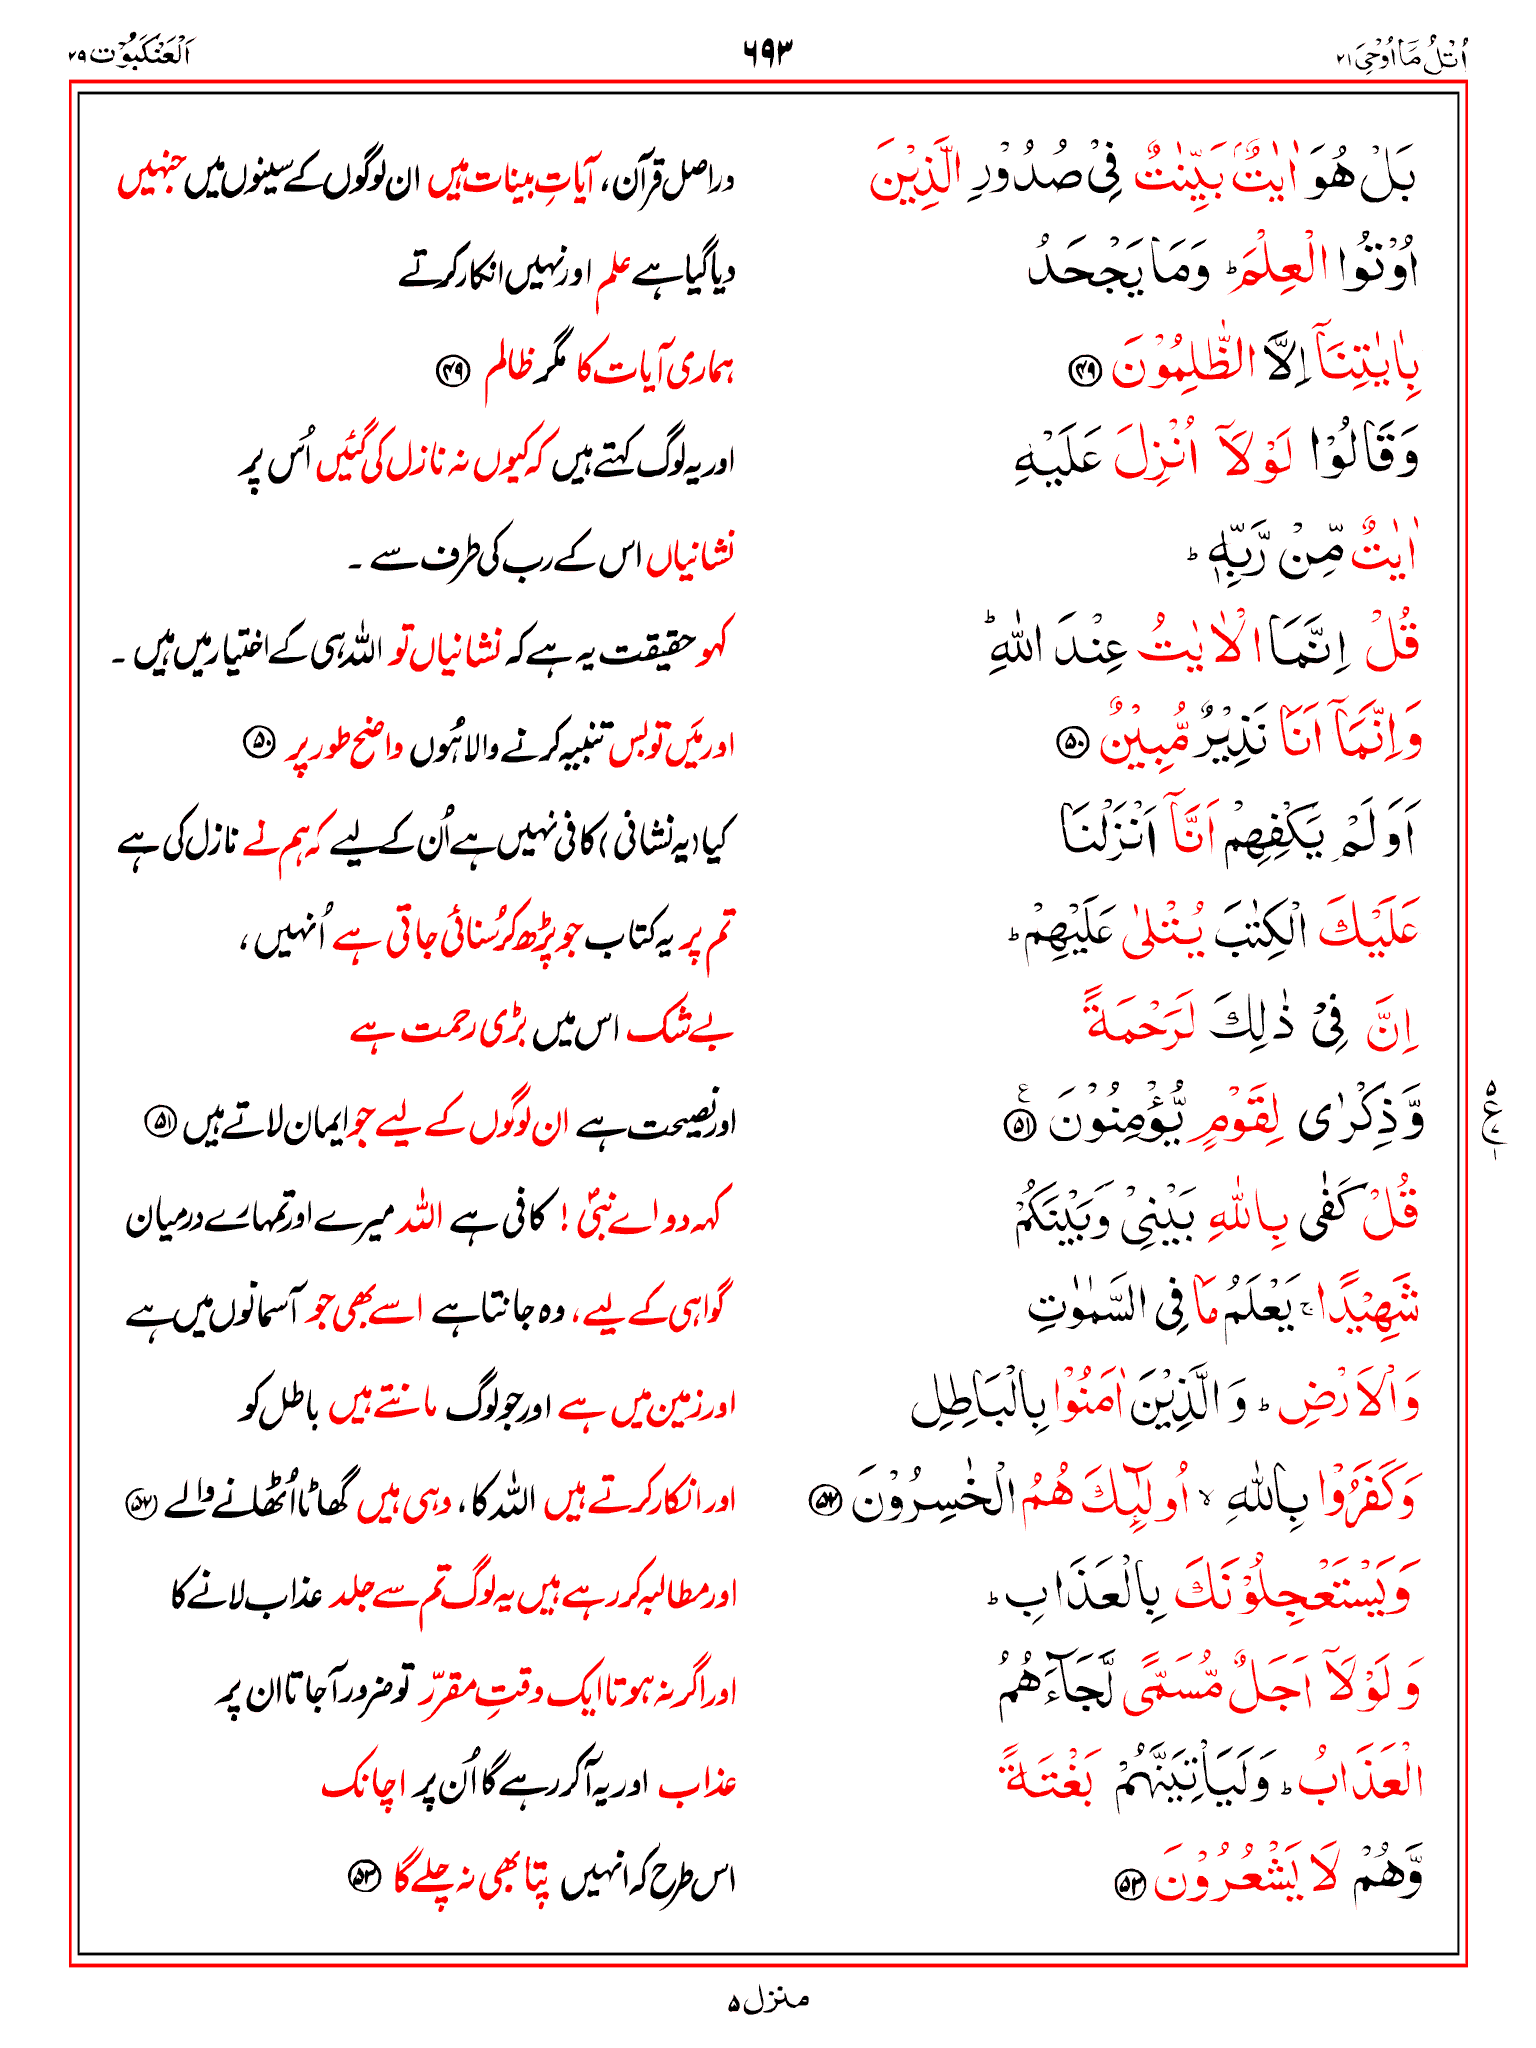 اُتْلُ مَآ اُوْحِیَ ۲۱ ۶۹۳ اَلْعَنْكَبُوْت ۲۹
بَلْ هُوَ اٰیٰتٌۢ بَیِّنٰتٌ فِیْ صُدُوْرِ الَّذِیْنَ دراصل قرآن، آیاتِ بینات ہیں ان لوگوں کے سینوں میں جنہیں
اُوْتُوا الْعِلْمَ ؕ وَمَا یَجْحَدُ دیا گیا ہے علم اور نہیں انکار کرتے
بِاٰیٰتِنَاۤ اِلَّا الظّٰلِمُوْنَ ﴿۴۹﴾ ہماری آیات کا مگر ظالم ﴿۴۹﴾
وَقَالُوْا لَوْلَاۤ اُنْزِلَ عَلَیْهِ اور یہ لوگ کہتے ہیں کہ کیوں نہ نازل کی گئیں اُس پر
اٰیٰتٌ مِّنْ رَّبِّهٖ ؕ نشانیاں اس کے رب کی طرف سے ۔
قُلْ اِنَّمَا الْاٰیٰتُ عِنْدَ اللّٰهِ ؕ کہو حقیقت یہ ہے کہ نشانیاں تو اللہ ہی کے اختیار میں ہیں ۔
وَاِنَّمَاۤ اَنَا نَذِیْرٌ مُّبِیْنٌ ﴿۵۰﴾ اور مَیں تو بس تنبیہ کرنے والا ہُوں واضح طور پر ﴿۵۰﴾
اَوَلَمْ یَكْفِهِمْ اَنَّاۤ اَنْزَلْنَا کیا (یہ نشانی) کافی نہیں ہے اُن کے لیے کہ ہم نے نازل کی ہے
عَلَیْكَ الْكِتٰبَ یُتْلٰی عَلَیْهِمْ ؕ تم پر یہ کتاب جو پڑھ کر سُنائی جاتی ہے اُنہیں،
اِنَّ فِیْ ذٰلِكَ لَرَحْمَةً بے شک اس میں بڑی رحمت ہے
وَّذِكْرٰی لِقَوْمٍ یُّؤْمِنُوْنَ ﴿۵۱﴾ ع اور نصیحت ہے ان لوگوں کے لیے جو ایمان لاتے ہیں ﴿۵۱﴾
قُلْ كَفٰی بِاللّٰهِ بَیْنِیْ وَبَیْنَكُمْ کہہ دو اے نبیؐ ! کافی ہے اللہ میرے اور تمہارے درمیان
شَهِیْدًا ۚ یَعْلَمُ مَا فِی السَّمٰوٰتِ گواہی کے لیے، وہ جانتا ہے اسے بھی جو آسمانوں میں ہے
وَالْاَرْضِ ؕ وَالَّذِیْنَ اٰمَنُوْا بِالْبَاطِلِ اور زمین میں ہے اور جو لوگ مانتے ہیں باطل کو
وَكَفَرُوْا بِاللّٰهِ ۙ اُولٰٓئِكَ هُمُ الْخٰسِرُوْنَ ﴿۵۲﴾ اور انکار کرتے ہیں اللہ کا، وہی ہیں گھاٹا اُٹھانے والے ﴿۵۲﴾
وَیَسْتَعْجِلُوْنَكَ بِالْعَذَابِ ؕ اور مطالبہ کر رہے ہیں یہ لوگ تم سے جلد عذاب لانے کا
وَلَوْلَاۤ اَجَلٌ مُّسَمًّی لَّجَآءَهُمُ اور اگر نہ ہوتا ایک وقتِ مقررّ تو ضرور آ جاتا ان پر
الْعَذَابُ ؕ وَلَیَاْتِیَنَّهُمْ بَغْتَةً عذاب اور یہ آ کر رہے گا اُن پر اچانک
وَّهُمْ لَا یَشْعُرُوْنَ ﴿۵۳﴾ اس طرح کہ انہیں پتا بھی نہ چلے گا ﴿۵۳﴾
منزل ۵